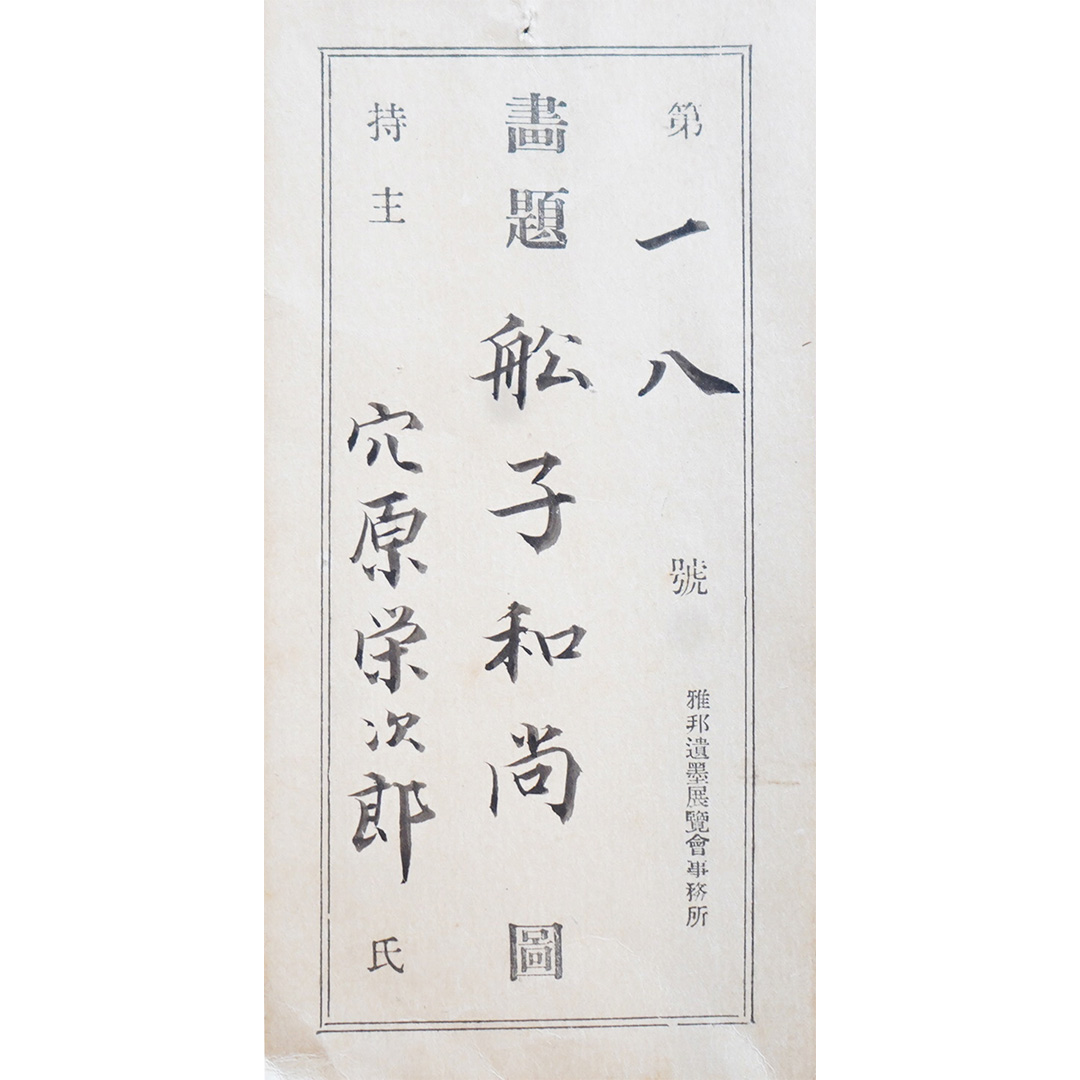 第一八號
雅邦遺墨展覽會事務所
畫題 舩子和尚圖
持主 穴原栄次郎氏